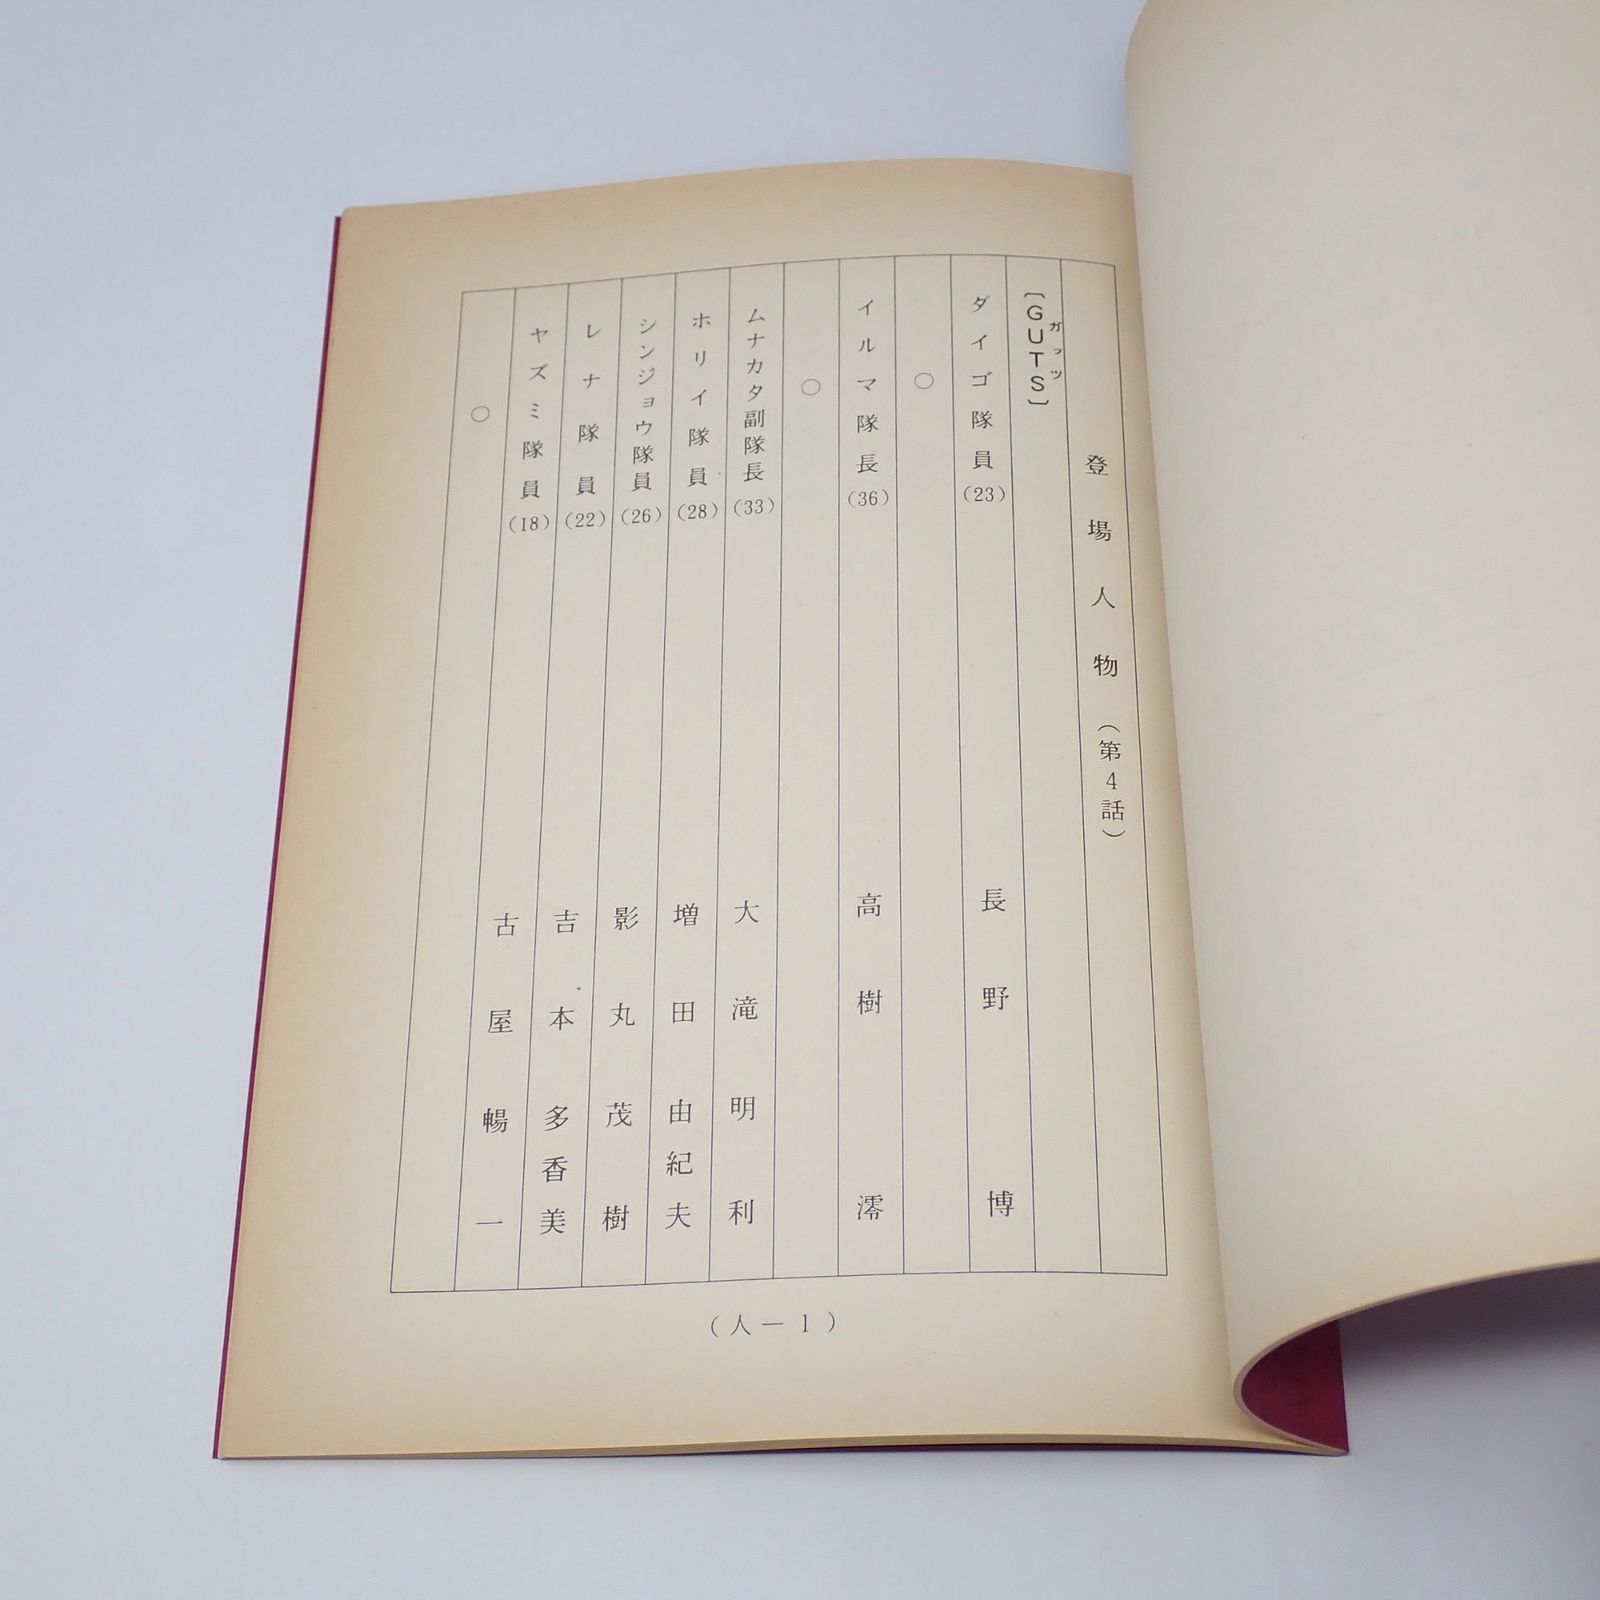 登場人物（第4話）
〔GUTS〕
ガッツ
ダイゴ隊員(23) 長野博
○
イルマ隊長(36) 高樹澪
○
ムナカタ副隊長(33) 大滝明利
ホリイ隊員(28) 増田由紀夫
シンジョウ隊員(26) 影丸茂樹
レナ隊員(22) 吉本多香美
ヤズミ隊員(18) 古屋暢一
○
（人―1）